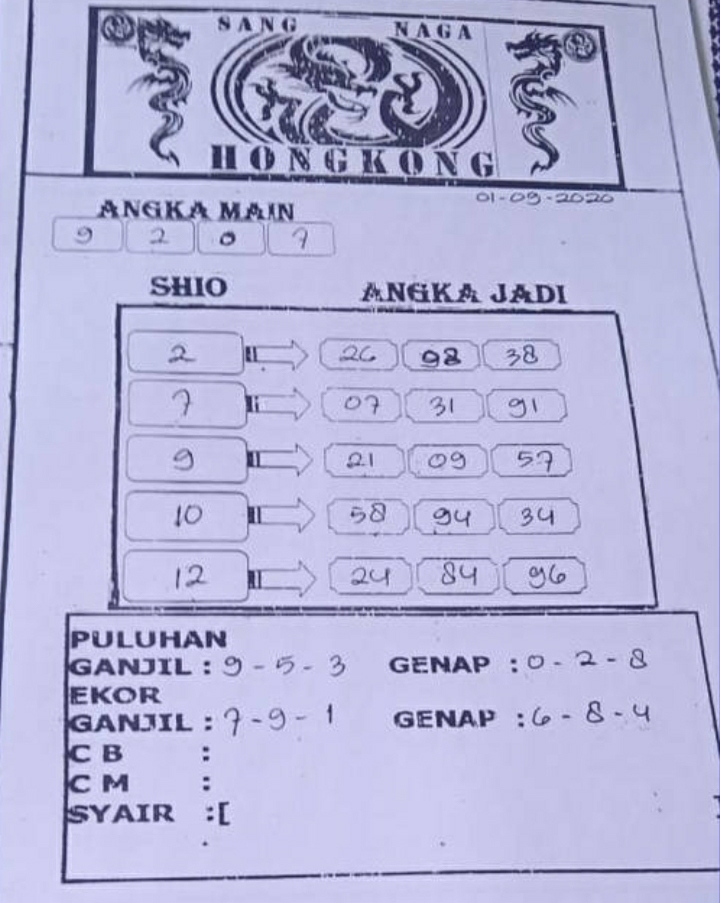 SANG NAGA
HONGKONG
01-09-2020
ANGKA MAIN
9 2 0 7
SHIO ANGKA JADI
2 26 98 38
7 07 31 91
9 21 09 57
10 58 94 34
12 24 84 96
PULUHAN
GANJIL : 9 - 5 - 3 GENAP : 0 - 2 - 8
EKOR
GANJIL : 7 - 9 - 1 GENAP : 6 - 8 - 4
C B :
C M :
SYAIR :[